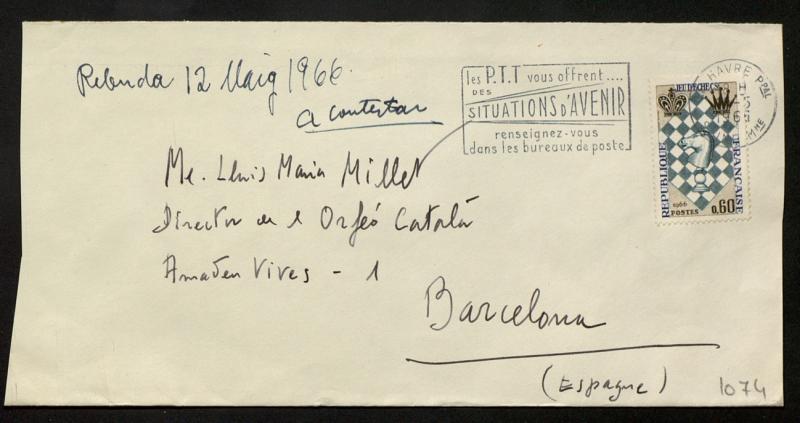 Rebuda 12 Maig 1966.
a contestar
les P.T.T vous offrent....
DES
SITUATIONS D'AVENIR
renseignez-vous
dans les bureaux de poste
HAVRE PPAL
JEU D'ÉCHECS
RÉPUBLIQUE
FRANÇAISE
1966
POSTES
0,60
Me. Lluis Maria Millet
Director de l Orfeó Català
Amadeu Vives - 1
Barcelona
(Espagne)
1074